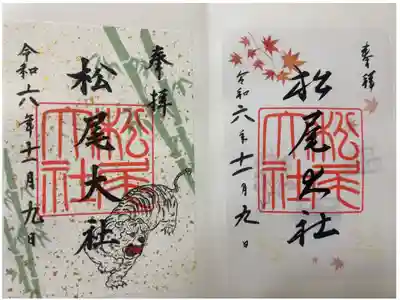 奉拝
松尾大社
令和六年十一月九日
松尾大社
奉拝
松尾大社
令和六年十一月九日
松尾大社